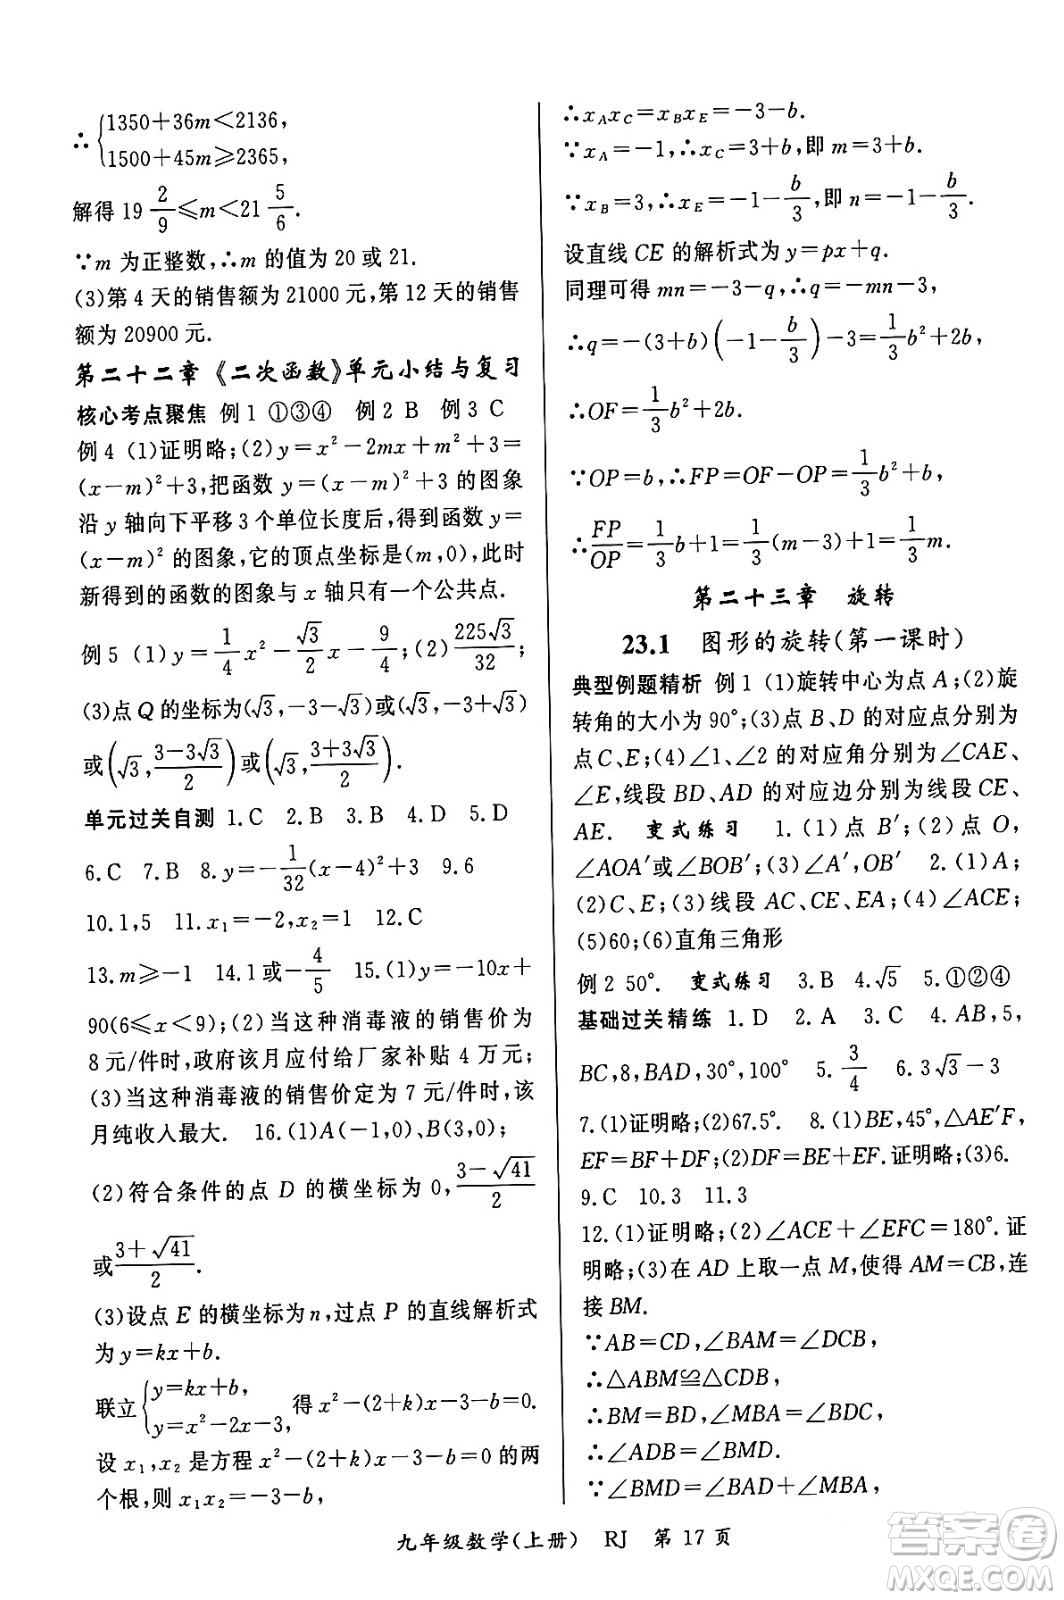 ∴{1350+36m<2136,
1500+45m≥2365,
解得 19 2/9≤m<21 5/6.
∵m 为正整数,∴m 的值为 20 或 21.
(3)第 4 天的销售额为 21000 元,第 12 天的销售
额为 20900 元.
第二十二章《二次函数》单元小结与复习
核心考点聚焦 例 1 ①③④ 例 2 B 例 3 C
例 4 (1)证明略;(2)y=x²-2mx+m²+3=
(x-m)²+3,把函数 y=(x-m)²+3 的图象
沿 y 轴向下平移 3 个单位长度后,得到函数 y=
(x-m)² 的图象,它的顶点坐标是(m,0),此时
新得到的函数的图象与 x 轴只有一个公共点.
例 5 (1)y=1/4x²-√3/2x-9/4;(2)225√3/32;
(3)点 Q 的坐标为(√3,-3-√3)或(√3,-3+√3)
或(√3,(3-3√3)/2)或(√3,(3+3√3)/2).
单元过关自测 1.C 2.B 3.B 4.D 5.D
6.C 7.B 8.y=-1/32(x-4)²+3 9.6
10.1,5 11.x₁=-2,x₂=1 12.C
13.m≥-1 14.1或-4/5 15.(1)y=-10x+
90(6≤x<9);(2)当这种消毒液的销售价为
8 元/件时,政府该月应付给厂家补贴 4 万元;
(3)当这种消毒液的销售价定为 7 元/件时,该
月纯收入最大. 16.(1)A(-1,0),B(3,0);
(2)符合条件的点 D 的横坐标为 0,(3-√41)/2
或(3+√41)/2.
(3)设点 E 的横坐标为 n,过点 P 的直线解析式
为 y=kx+b.
联立{y=kx+b,
y=x²-2x-3,得 x²-(2+k)x-3-b=0.
设 x₁,x₂ 是方程 x²-(2+k)x-3-b=0 的两
个根,则 x₁x₂=-3-b,
∴x_Ax_C=x_Bx_E=-3-b.
∵x_A=-1,∴x_C=3+b,即 m=3+b.
∵x_B=3,∴x_E=-1-b/3,即 n=-1-b/3.
设直线 CE 的解析式为 y=px+q.
同理可得 mn=-3-q,∴q=-mn-3,
∴q=-(3+b)(-1-b/3)-3=1/3b²+2b.
∴OF=1/3b²+2b.
∵OP=b,∴FP=OF-OP=1/3b²+b,
∴FP/OP=1/3b+1=1/3(m-3)+1=1/3m.
第二十三章 旋转
23.1 图形的旋转(第一课时)
典型例题精析 例 1 (1)旋转中心为点 A;(2)旋
转角的大小为 90°;(3)点 B、D 的对应点分别为
点 C、E;(4)∠1、∠2 的对应角分别为∠CAE、
∠E,线段 BD、AD 的对应边分别为线段 CE、
AE. 变式练习 1.(1)点 B′;(2)点 O,
∠AOA′或∠BOB′;(3)∠A′,OB′ 2.(1)A;
(2)C、E;(3)线段 AC、CE、EA;(4)∠ACE;
(5)60;(6)直角三角形
例 2 50° 变式练习 3.B 4.√5 5.①②④
基础过关精练 1.D 2.A 3.C 4.AC,5,
BC,8,BAD,30°,30° 5.3/4 6.3√3-3
7.(1)证明略;(2)67.5° 8.(1)BE,45°,△AE′F,
EF=BF+DF;(2)DF=BE+EF.证明略;(3)6.
9.C 10.3 11.3
12.(1)证明略;(2)∠ACE+∠EFC=180°.证
明略;(3)在 AD 上取一点 M,使得 AM=CB,连
接 BM.
∵AB=CD,∠BAM=∠DCB,
∴△ABM≌△CDB,
∴BM=BD,∠MBA=∠BDC,
∴∠ADB=∠BMD.
∵∠BMD=∠BAD+∠MBA,
九年级数学(上册) RJ 第 17 页
答案圈